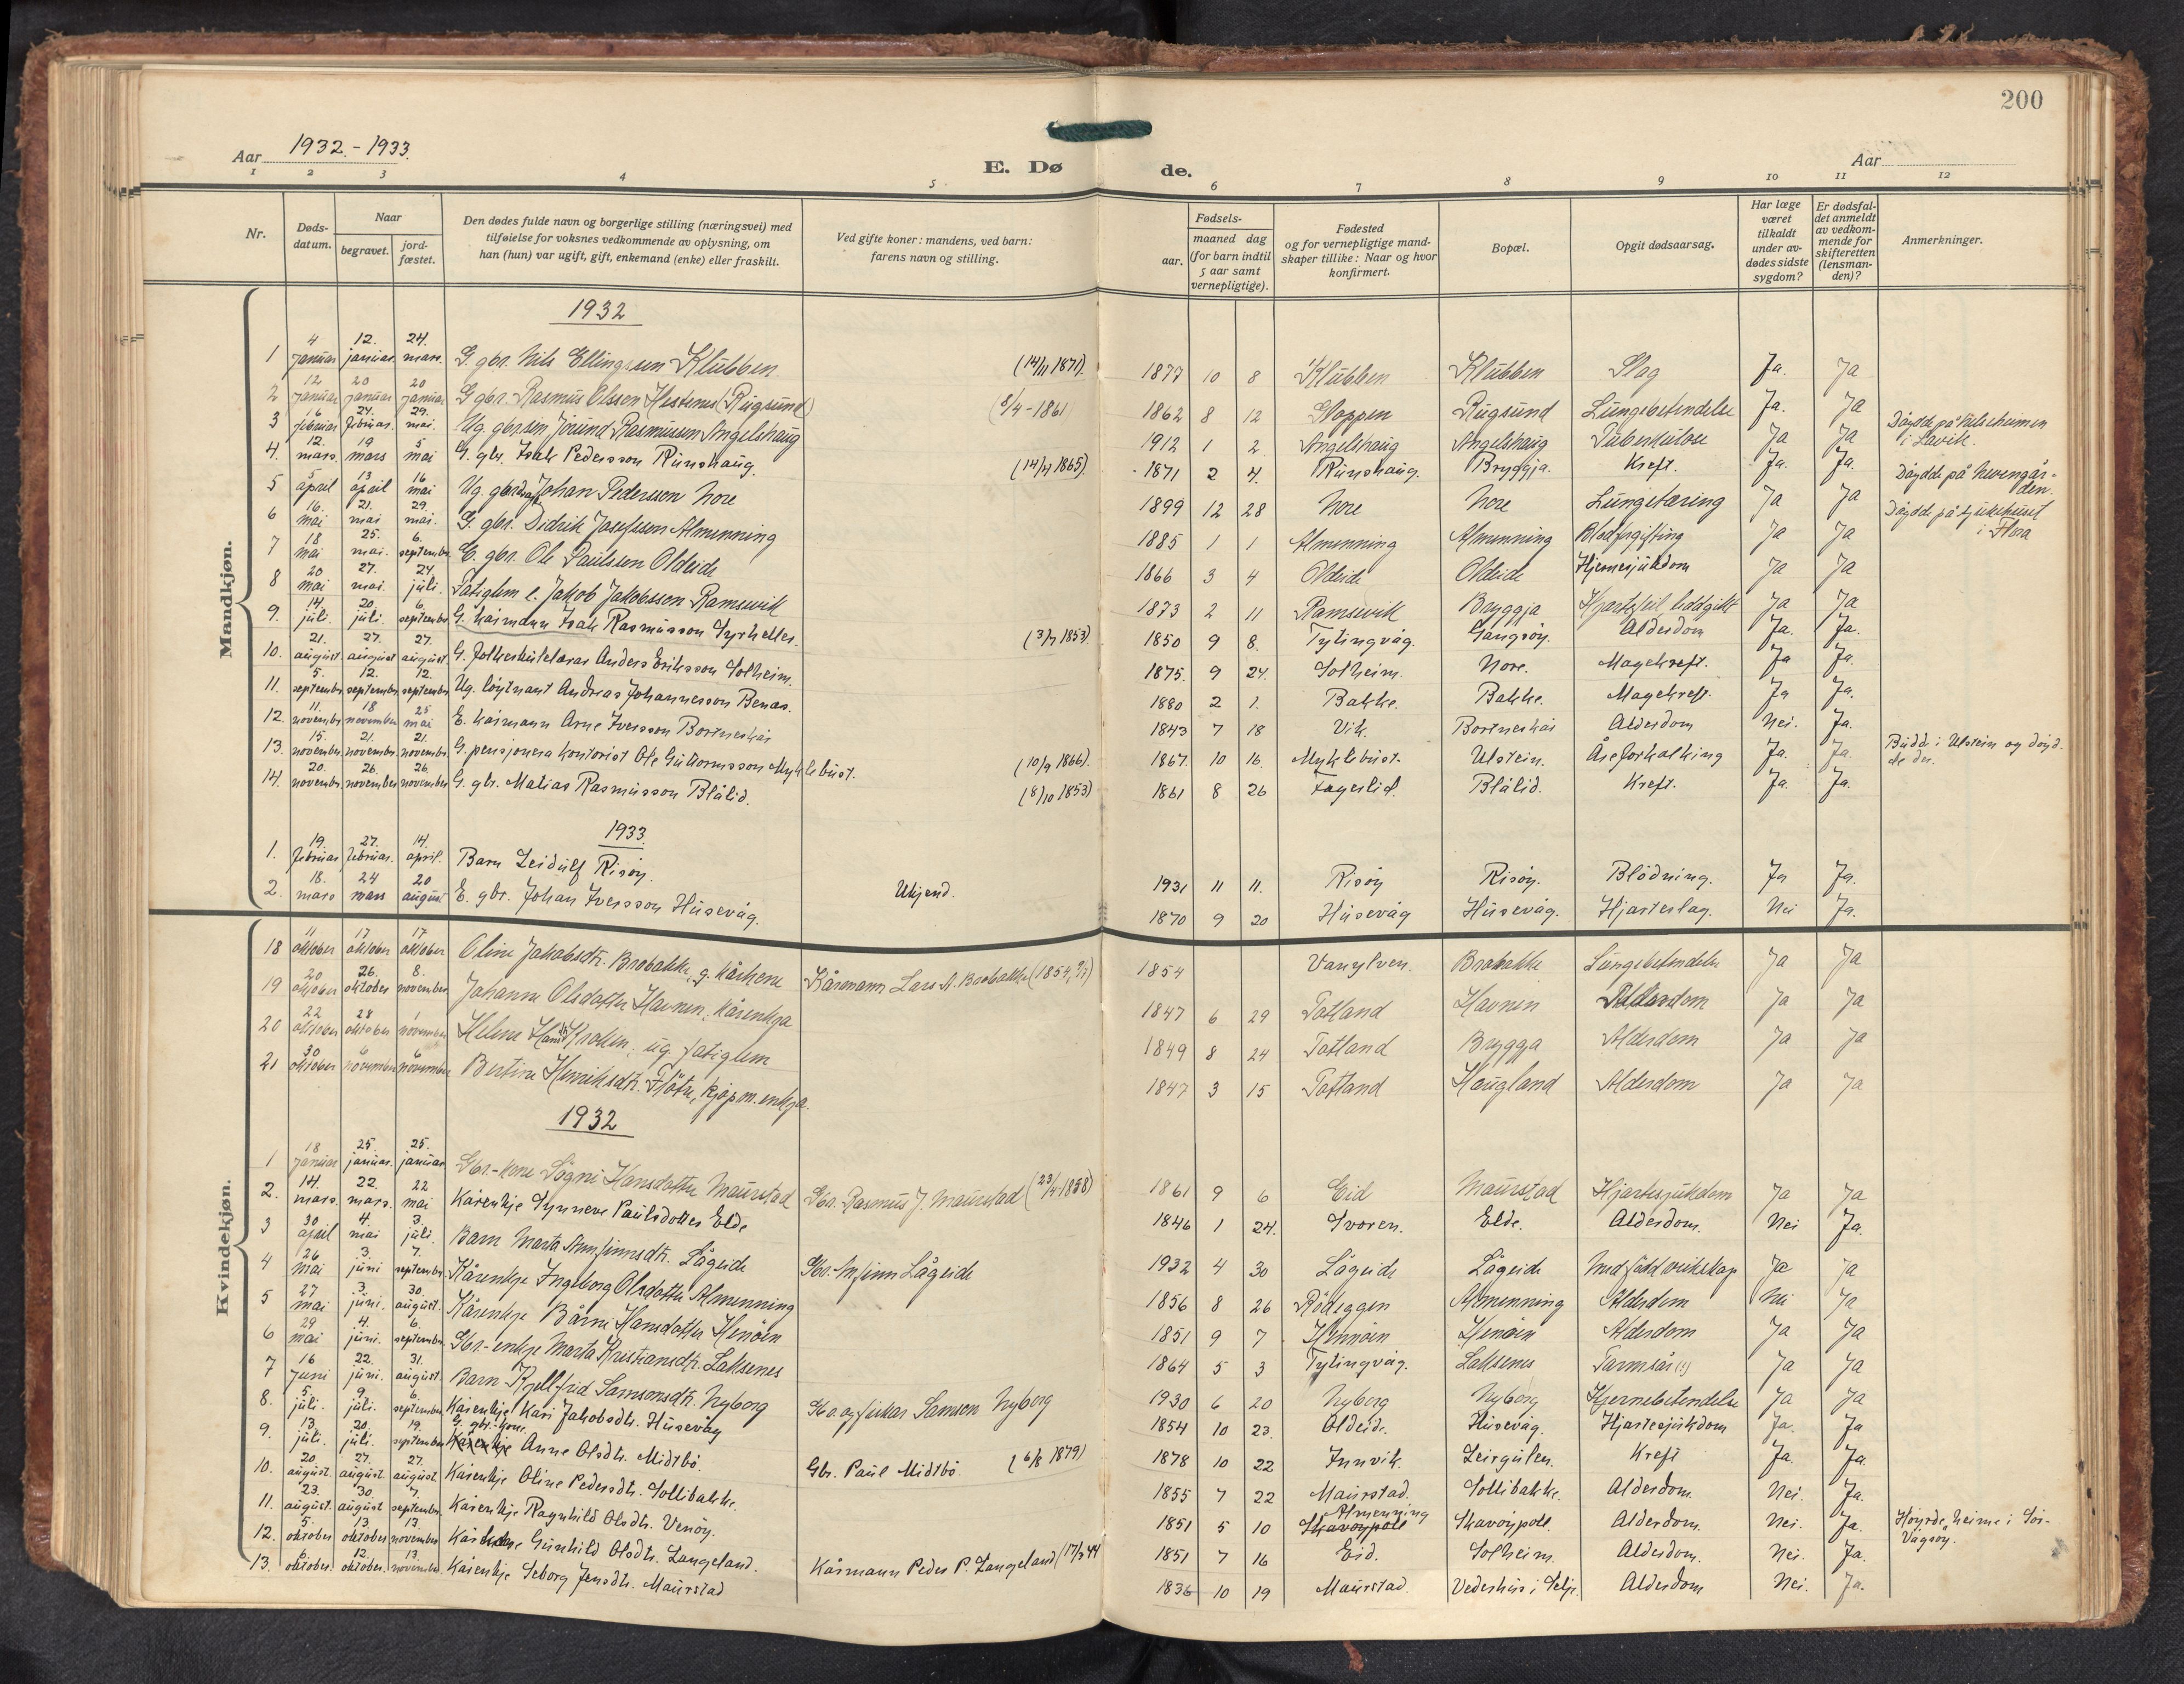 200
Aar 1932.-1933.
E. Dø de.
Aar
1 2 3 4 5 6 7 8 9 10 11 12
Nr.
Døds-datum.
Naar
begravet.
jord-fæstet.
Den dødes fulde navn og borgerlige stilling (næringsvei) med
tilføielse for voksnes vedkommende av oplysning, om
han (hun) var ugift, gift, enkemand (enke) eller fraskilt.
Ved gifte koner: mandens, ved barn:
farens navn og stilling.
Fødsels-
aar.
maaned dag
(for barn indtil
5 aar samt
vernepligtige).
Fødested
og for vernepligtige mand-
skaper tillike: Naar og hvor
konfirmert.
Bopæl.
Opgit dødsaarsag.
Har læge
været
tilkaldt
under av-
dødes sidste
sygdom?
Er dødsfal-
det anmeldt
av vedkom-
mende for
skifteretten
(lensman-
den)?
Anmerkninger.
Mandkjøn.
1932
1 4 januar 12. januar 24. mars. G. gbr. Nils Ellingsen Klubben (14/11 1871). 1877 10 8 Klubben Klubben Slag Ja. Ja
2 12 januar 20 januar 20 januar G. gbr. Rasmus Olssen Hestenes (Rugsund) (8/4-1861 1862 8 12 Gloppen Rugsund Lungebetendelse Ja. Ja
3 6 februar 24. februar. 29. mai. Ug. gbr.sen Jorund Rasmussen Angelshaug 1912 1 2 Angelshaug Angelshaug Tuberkulose Ja Ja Döydde på Helseheimen i Lavik.
4. 12. mars. 19 mars 5 mai G. gbr. Isak Pedersson Runshaug. (14/4 1865). 1871 2 4. Runshaug. Bryggja. Kreft. Ja. Ja.
5 5 april 13 april 16 mai Ug. Johan Pedersson Nore 1899 12 28 Nore Nore Lungetæring Ja Ja Döydde på Nevengår-den.
6 16. mai 21. mai 29. mai. G. gbr. Didrik Josefssen Almenning 1885 1 1 Almenning Almenning Blodforgifting Ja Ja Döydde på sjukehuset i Flora
7 18 mai 25. mai. 6. septembr. E. gbr. Ole Paulssen Oldeide 1866 3 4 Oldeide Oldeide Hjernesjukdom Ja Ja
8 20 mai 27. mai. 24. juli. Fatiglem e. Jakob Jakobssen Ramsevik 1873 2 11 Ramsevik Bryggja Hjartefeil, leddgikt Ja Ja
9. 14. juli. 20. juli. 6. septembr G. kårmann Isak Rasmusson Tyrhelles. (3/7 1853). 1850 9 8. Tytingvåg. Gangsöy. Alderdom Ja. Ja.
10. 21. august 27. august 27. august. G. folkeskulelærar Anders Eriksson Solheim. 1875. 9 24. Solheim. Nore. Magekreft. Ja Ja.
11. 5. septembr 12. septembr 12. septembr Ug. löytnant Andreas Johannesson Benas. 1880 2 1. Bakke. Bakke. Magekreft. Ja Ja.
12. 11. novembr 18 november 25 mai E. kårmann Arne Iversson Bortneshår 1843 7 18 Vik. Bortneskår Alderdom Nei. Ja.
13. 15. novembr. 21. novembr. 21. novembr. G. pensjonera kontorist Ole Guttormsson Myklebust. (10/9 1866). 1867. 10 16. Myklebust. Ulstein. Åreforkalking Ja. Ja. Budd i Ulstein og döyd-de der.
14. 20. novembr. 26. november 26. november G. gbr. Matias Rasmusson Blålid. (8/10 1853) 1861 8 26 Fagerlid. Blålid. Kreft. Ja. Ja.
1933.
1. 19. februar 27. februar. 14. april. Barn Leidulf Risöy. Ukjend. 1931 11 11. Risöy Risöy. Blödning. Ja Ja.
2. 18. mars 24 mars 20 august E. gbr. Johan Iversson Husevåg. 1870 9 20 Husevåg Husevåg. Hjarteslag. Nei Ja.
Kvindekjøn.
18 11 oktober 17 oktober 17. oktober Oline Jakobsdtr. Brobakke, g. kårkone Kårmann Lars A. Brobakke (1854, 9/7) 1854 Vanylven. Brobakke Lungebetendelse Ja Ja
19 20 oktober 26. oktober 8. november Johanne Olsdatter Havnen, kårenkja 1847 6 29 Totland Havnen Alderdom Ja Ja
20 22 oktober 28 oktober 1 november Helene Hansdtr Kroken, ug. fatiglem 1849 8 24 Totland Bryggja Alderdom Ja Ja
21 30 oktober 6 november 6 november Bertine Henriksdtr. Flötre, kjöpm. enkja. 1847 3 15 Totland Haugland Alderdom Ja Ja
1932
1 18 januar 25. januar. 25. januar Gbr.-kone Sögni Hansdatter Maurstad Gbr. Rasmus J. Maurstad (23/4-1858) 1861 9 6 Eid Maurstad Hjartesjukdom Ja Ja
2. 14. mars. 22. mars. 22 mai Kårenkje Synneve Paulsdotter Elde 1846 1 24. Svoren. Elde. Alderdom. Nei Ja.
3 30 april 4. mai 3. juli. Barn Marta Annfinnsdtr. Lågeide Gbr. Anfinn Lågeide 1932 4 30 Lågeide Lågeide Medfödd veikskap Ja Ja
4 26 mai 3. juni 7. septembr. Kårenkje Ingeborg Olsdatter Almenning 1856 8 26 Rödeggen Almenning Alderdom Nei Ja
5 27 mai 3. juni. 30. august. Kårenkje Bårni Hansdatter Henöen 1851 9 7 Hennöen Henöen Alderdom Ja Ja
6 29 mai 4. juni. 6. septembr. Gbr.-enkje Marta Kristiansdtr. Laksenes 1864 5 3 Tytingvåg. Laksenes Tarmsår (!) Ja Ja
7 16 juni 22. juni. 31. august. Barn Kjellfrid Samsonsdtr. Nyborg Gbr. og fiskar Samson Nyborg 1930 6 20 Nyborg Nyborg Hjernebetendelse Ja Ja
8. 5. juli. 9. juli. 6. septembr Kårenkje Kari Jakobsdtr. Husevåg 1854 10 23. Oldeide. Husevåg. Hjartesjukdom Ja. Ja
9. 13. juli. 20. juli. 19. septembr G. gbr.-kone Kårenkje Anne Olsdtr. Midtbö. Gbr. Paul Midtbö. (6/8 1879) 1878 10 22 Innvik. Leirgulen. Kreft Ja. Ja.
10. 20. august. 27. august 27. august. Kårenkje Oline Pedersdtr. Sollibakke. 1855 7 22 Maurstad. Sollibakke. Alderdom. Nei. Ja.
11. 23. august. 30. august 7. septembr. Kårenkje Ragnhild Olsdtr. Venöy. 1851 5 10 Almenning Skavöypoll Skavöypoll. Alderdom. Nei. Ja. Höyrde heime i Sör-Vågsöy.
12. 5. oktober 13. oktober 13. november Kårkone Gunhild Olsdtr. Langeland. Kårmann Peder P. Langeland (17/3 44 1851 7 16 Eid. Solheim. Alderdom. Nei. Ja.
13. 6. oktober. 12. oktober. 13. november. Kårenkje Seborg Jensdtr. Maurstad 1836 10 19 Maurstad. Vedeshus i Selje. Alderdom Nei. Ja.